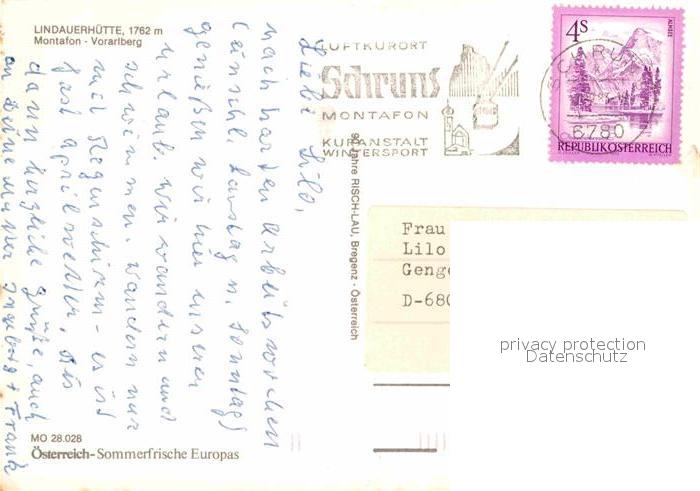 LINDAUERHÜTTE, 1762 m
Montafon - Vorarlberg
LUFTKURORT
Schruns
MONTAFON
KURANSTALT
WINTERSPORT
4S
ALMSEE
SCHRUNS
6780
REPUBLIK ÖSTERREICH
90 Jahre RISCH-LAU, Bregenz - Österreich
Liebe Lilo,
nach harten Arbeitswochen
(einschl. Samstag u. Sonntag)
genießen wir hier unseren
Urlaub. Wir wandern und
schwimmen. Wandern nur
mit Regenschirm - es ist
fast Aprilwetter. Bis
dann herzliche Grüße, auch
an Deine Mutter Ingeborg + Frank
Frau
Lilo
Geng
D-680
privacy protection
Datenschutz
MO 28.028
Österreich - Sommerfrische Europas